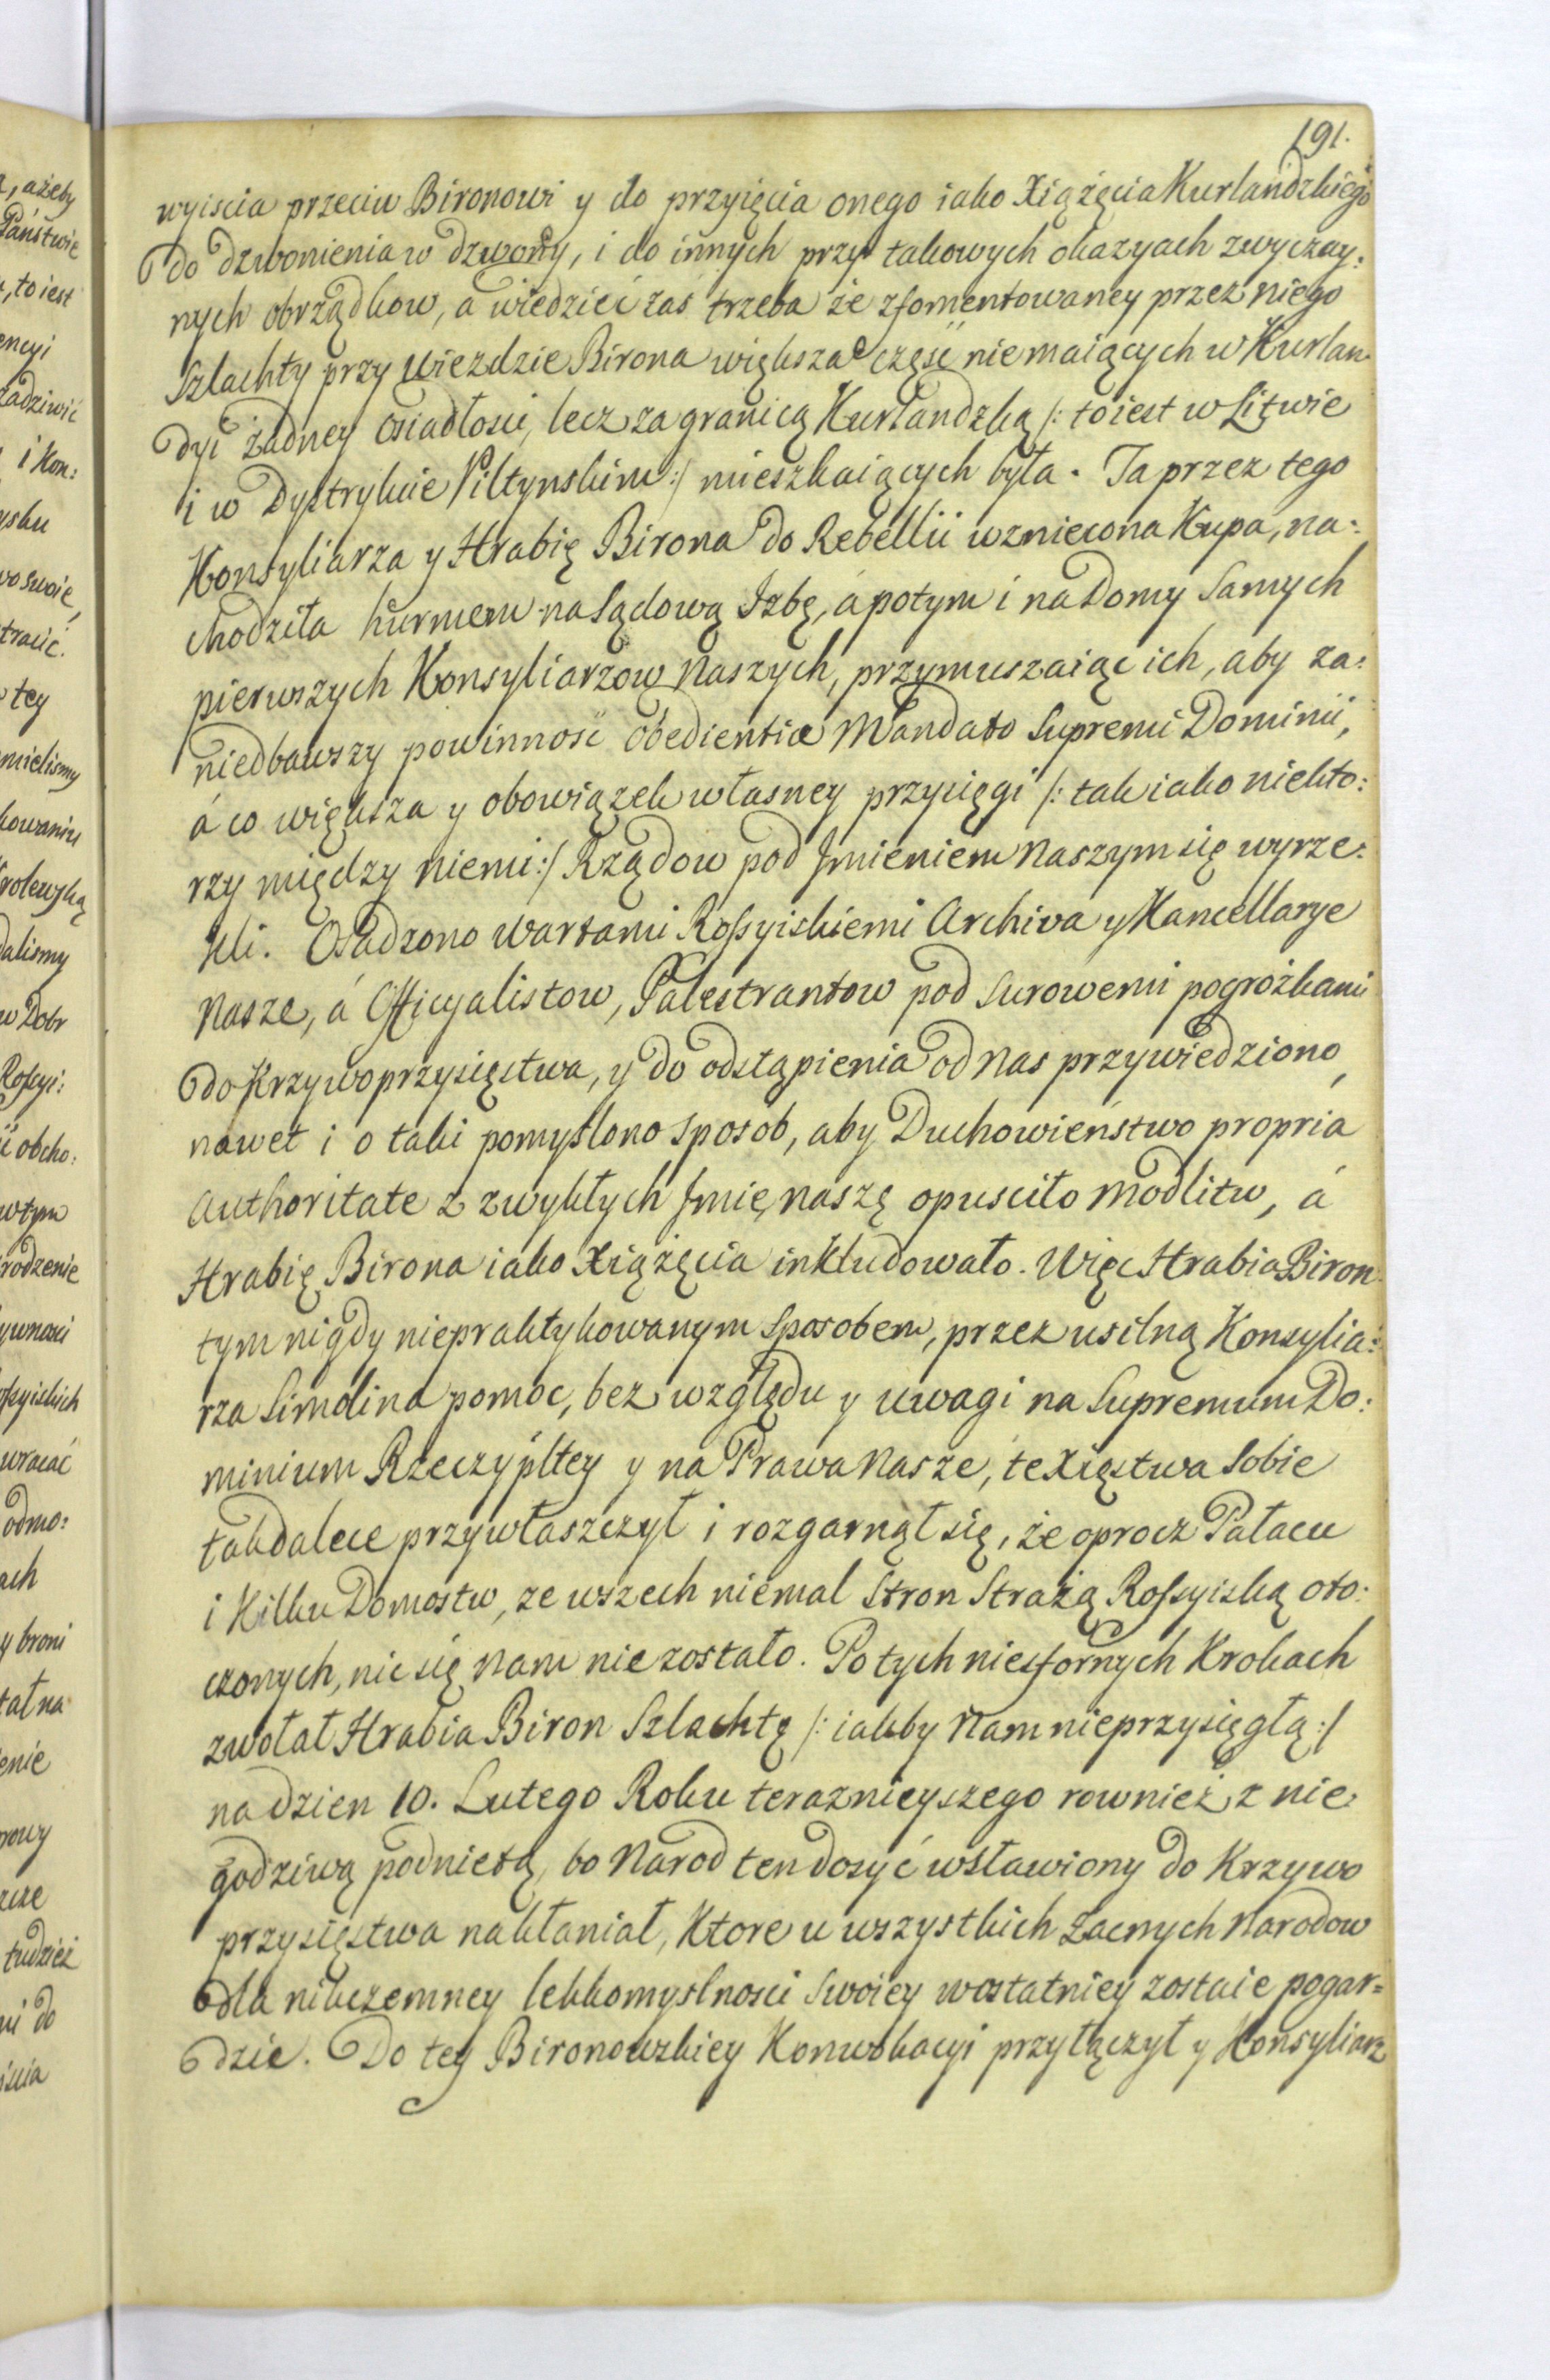 191.
wyiscia przeciw Bironowi y do przyięcia onego iako Xiążęcia Kurlandzkiego
do dzwonienia w dzwony, i do innych przy takowych okazyach zwyczay:
nych obrządkow, a wiedzieć zaś trzeba że zfomentowaney przez niego
Szlachty przy wiezdzie Birona większa część nie maiących w Kurlan
dyi żadney osiadłosci, lecz za granicą Kurlandzką /: to iest w Litwie
i w Dystrykcie Piltynskim :/ mieszkaiących była. Ta przez tego
Konsyliarza y Hrabię Birona do Rebellii wzniecona Kupa, na:
chodziła hurmem na Sądową Izbę, á potym i na Domy Samych
pierwszych Konsyliarzow Naszych, przymuszaiąc ich, aby za:
niedbawszy powinność obedientiæ Mandato Supremi Dominii,
á co większa y obowiązek własney przysięgi /: tak iako niekto:
rzy między niemi :/ Rządow pod Jmieniem Naszym się wyrze:
kli. Osadzono wartami Rossyiskiemi Archiva y Kancellarye
Nasze, á Officyalistow, Palestrantow pod surowemi pogrożkami
do Krzywoprzysięstwa, y do odstąpienia od Nas przywiedziono,
nawet i o taki pomyślono sposob, aby Duchowieństwo propria
Authoritate z zwykłych Jmię naszę opusciło Modlitw, á
Hrabię Birona iako Xiążęcia inkludowało. Więc Hrabia Biron
tym nigdy niepraktykowanym sposobem, przez usilną Konsylia:
rza Simolina pomoc, bez względu y uwagi na Supremum Do:
minium Rzeczypltey y na Prawa Nasze, te Xięstwa Sobie
takdalece przywłaszczył i rozgarnął się, że oprocz Pałacu
i Kilku Domostw, ze wszech niemal Stron Strażą Rossyiską oto:
czonych, nic się Nam nie zostało. Po tych niesfornych Krokach
zwołał Hrabia Biron Szlachtę /: iakby Nam nieprzysięgłą :/
na dzien 10. Lutego Roku teraznieyszego rownież z nie
godziwą podnietą, bo Narod ten dosyć wsławiony do Krzywo
przysięstwa nakłaniał, Ktore u wszystkich zacnych Narodow
dla nikczemney lekkomyslnosci swoiey wostatniey zostaie pogar=
dzie. Do tey Bironowskiey Konwokacyi przyłączył y Konsyliarz